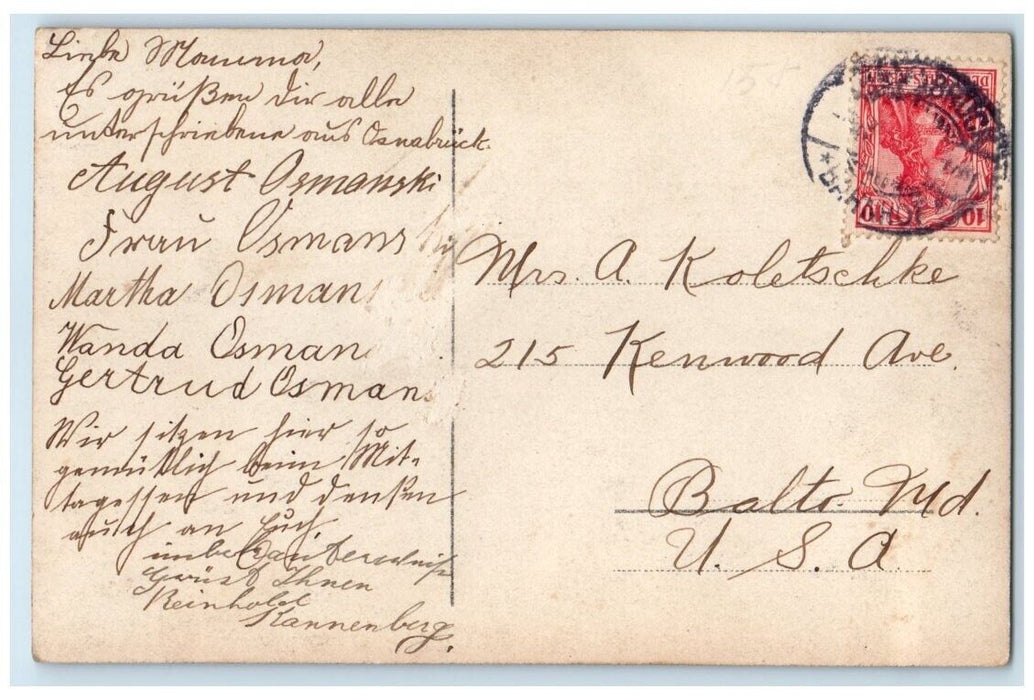 Liebe Mamma,
Es grüßen dir alle
unterschriebene aus Osnabrück.
August Osmanski
Frau Osmanski
Martha Osmans
Wanda Osman
Gertrud Osmans
Wir sitzen hier so
gemütlich beim Mit-
tagessen und denken
auch an Euch
unbekannterweise
Grüst Ihnen
Reinhold
Kannenberg.
155
10 10
Mrs. A. Koletschke
215 Kenwood Ave.
Balto. Md.
U. S. A